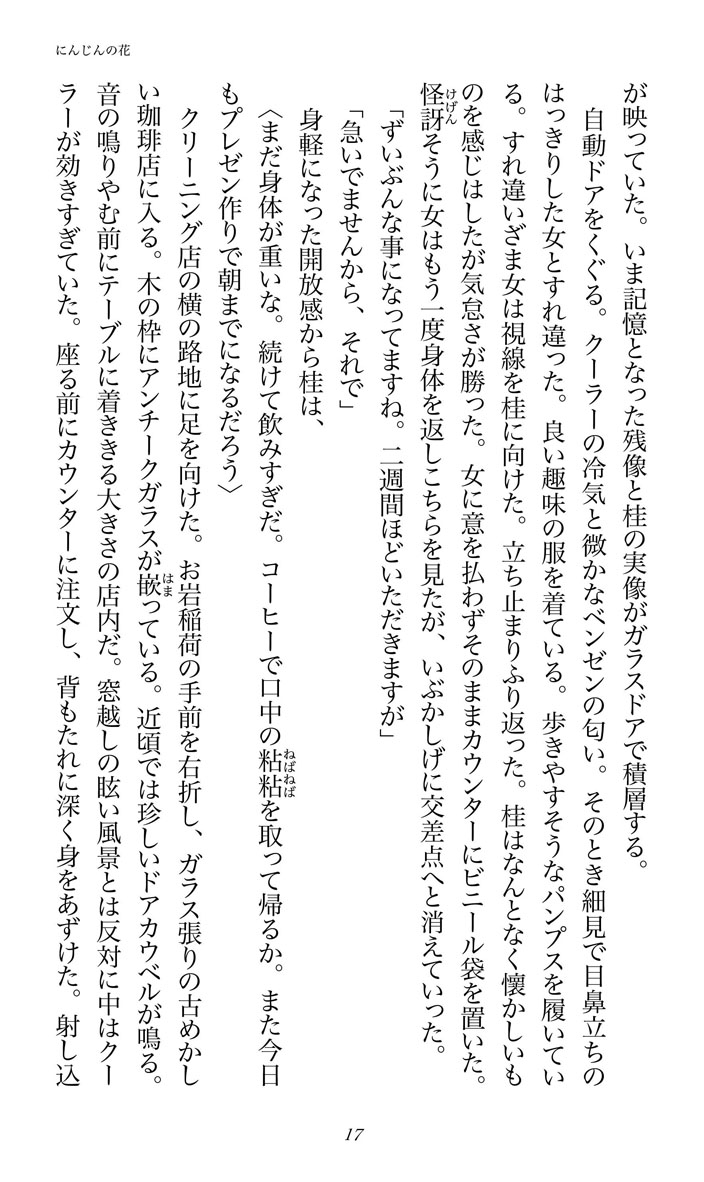 にんじんの花
が映っていた。いま記憶となった残像と桂の実像がガラスドアで積層する。
自動ドアをくぐる。クーラーの冷気と微かなベンゼンの匂い。そのとき細見で目鼻立ちの
はっきりした女とすれ違った。良い趣味の服を着ている。歩きやすそうなパンプスを履いてい
る。すれ違いざま女は視線を桂に向けた。立ち止まりふり返った。桂はなんとなく懐かしいも
のを感じはしたが気怠さが勝った。女に意を払わずそのままカウンターにビニール袋を置いた。
怪訝そうに女はもう一度身体を返しこちらを見たが、いぶかしげに交差点へと消えていった。
けげん
「ずいぶんな事になってますね。二週間ほどいただきますが」
「急いでませんから、それで」
身軽になった開放感から桂は、
〈まだ身体が重いな。続けて飲みすぎだ。コーヒーで口中の粘粘を取って帰るか。また今日
ねばねば
もプレゼン作りで朝までになるだろう〉
クリーニング店の横の路地に足を向けた。お岩稲荷の手前を右折し、ガラス張りの古めかし
い珈琲店に入る。木の枠にアンチークガラスが嵌っている。近頃では珍しいドアカウベルが鳴る。
はま
音の鳴りやむ前にテーブルに着ききる大きさの店内だ。窓越しの眩い風景とは反対に中はクー
ラーが効きすぎていた。座る前にカウンターに注文し、背もたれに深く身をあずけた。射し込
17